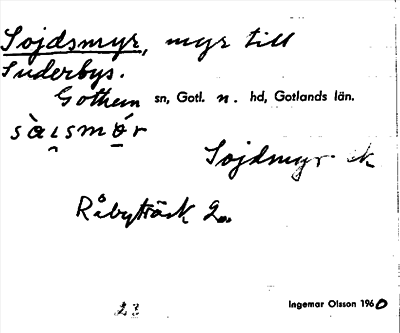 Sojdsmyr, myr till
Suderbys.
Gothem sn, Gotl. n. hd, Gotlands län.
Sojdmyr. ek
Råbyträsk 2a
23
Ingemar Olsson 1960